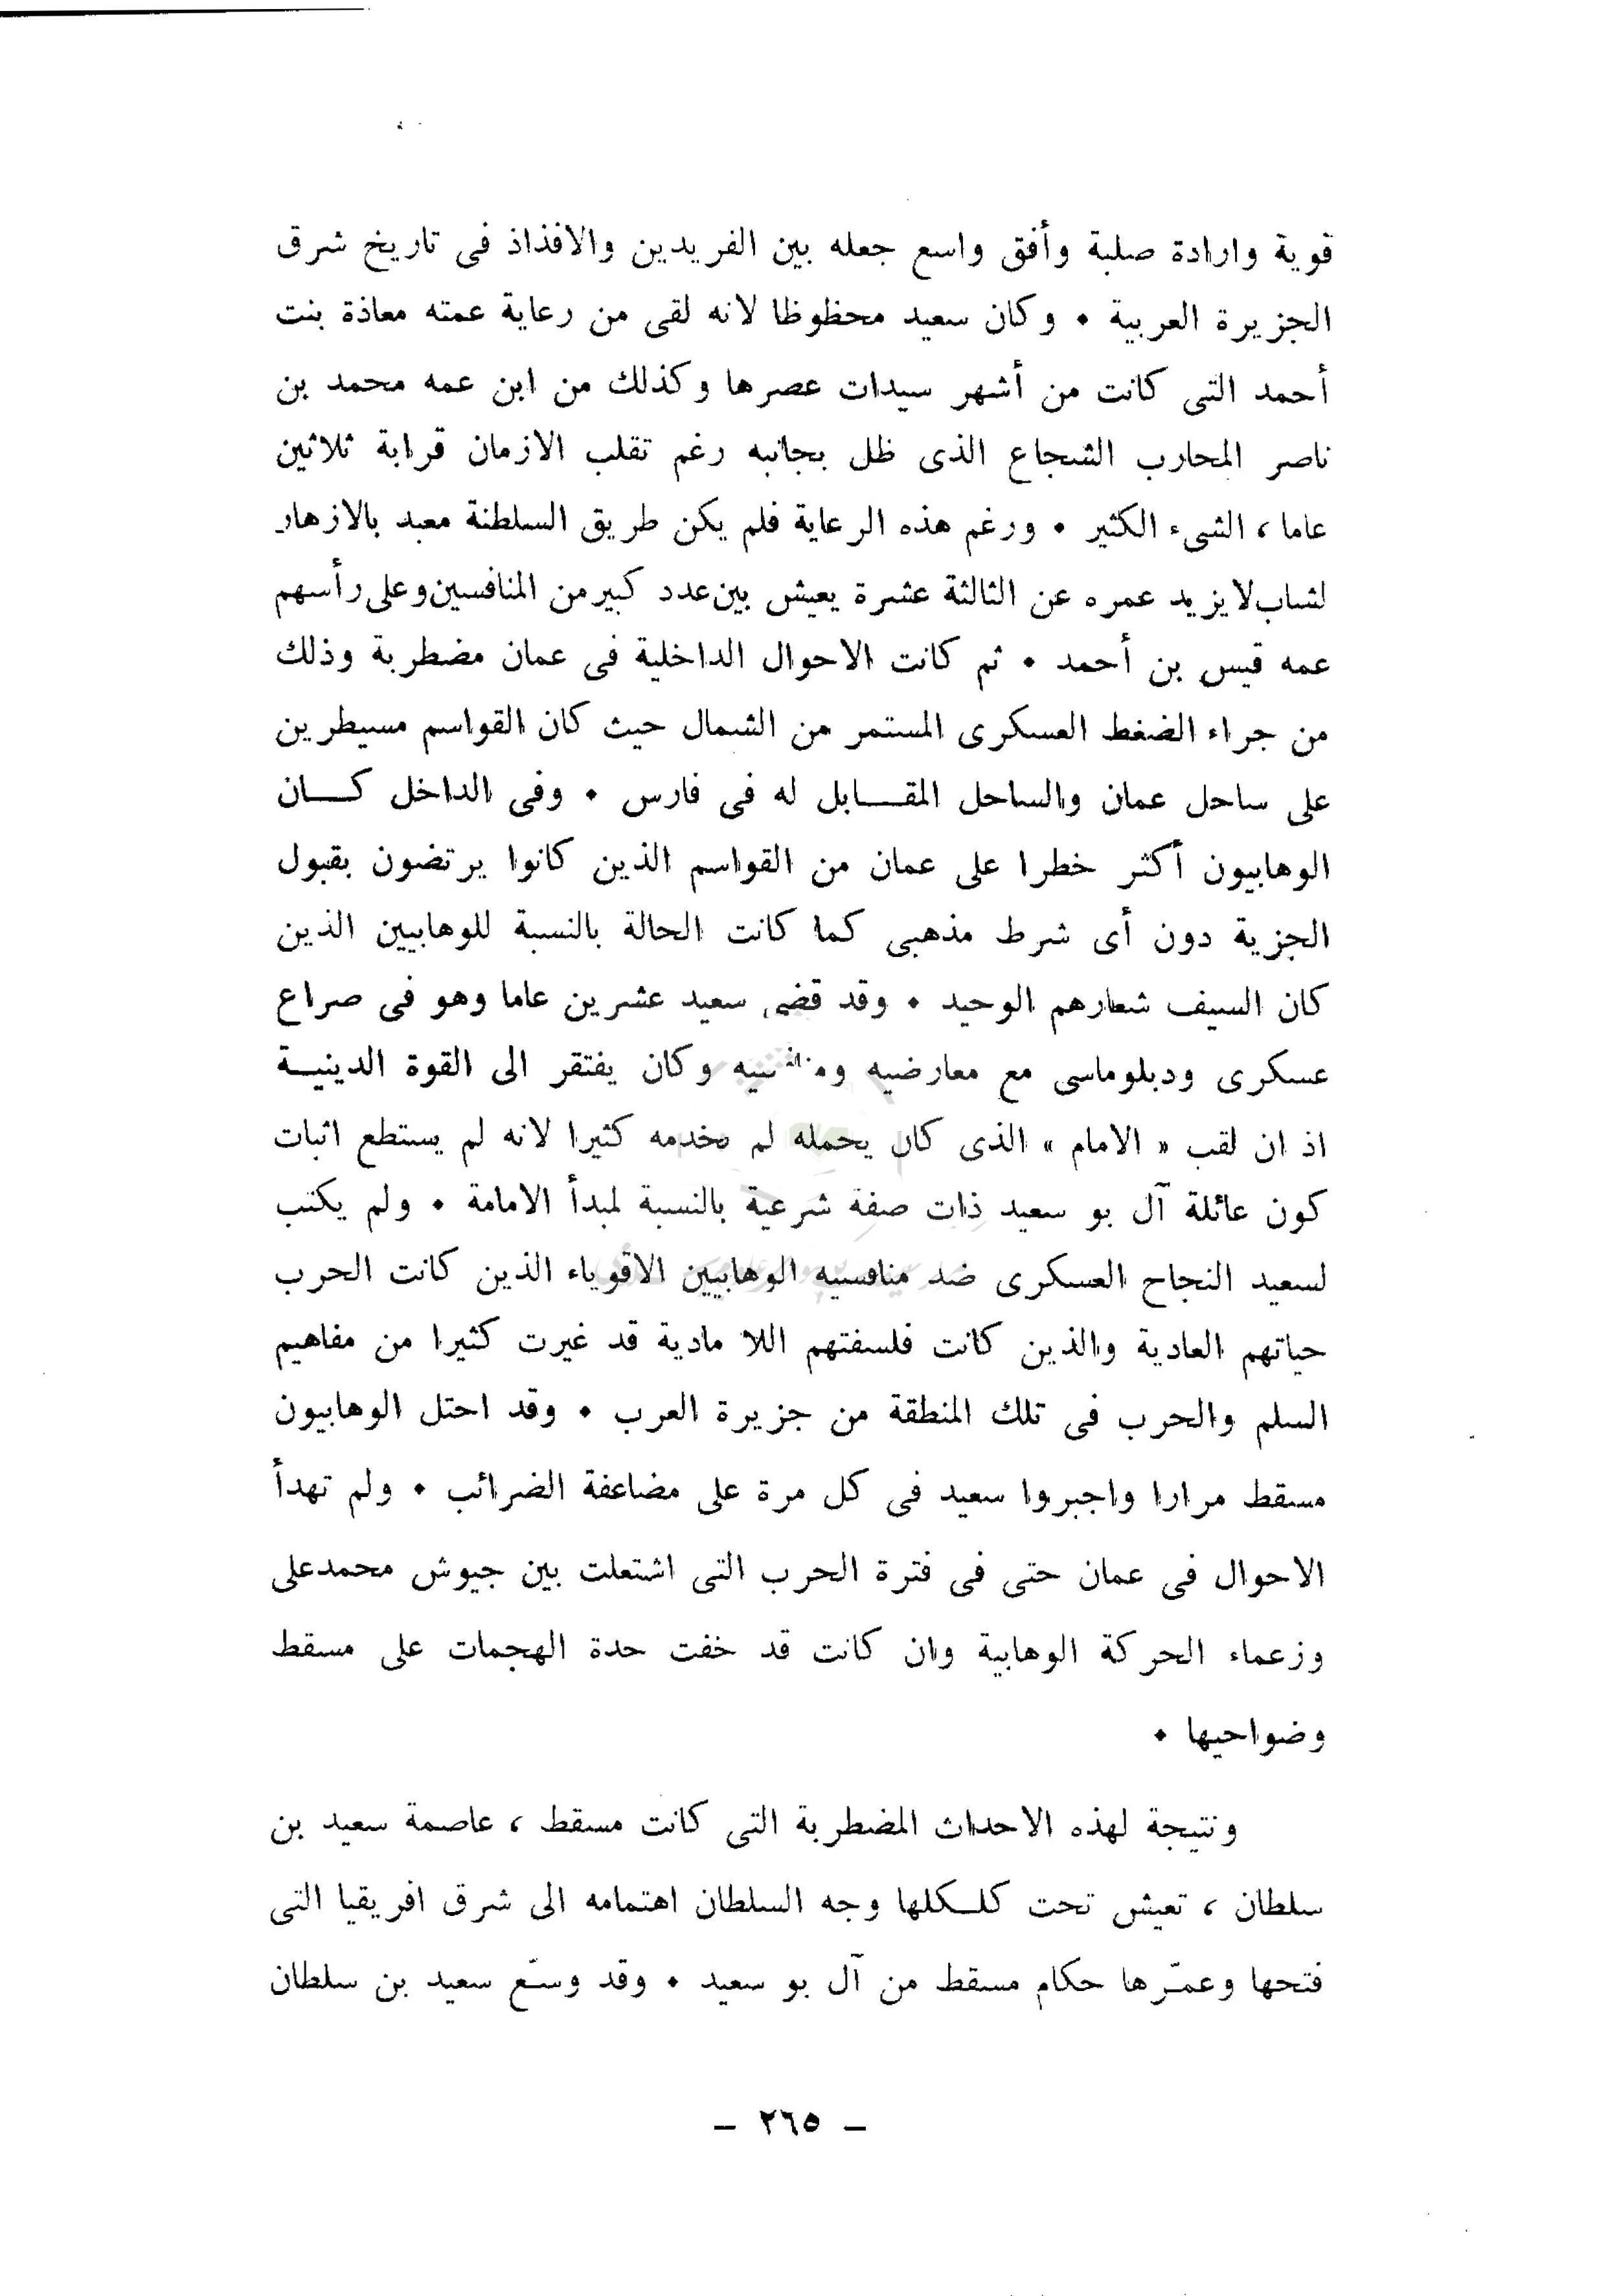 قوية وارادة صلبة وأفق واسع جعله بين الفريدين والافذاذ فى تاريخ شرق
الجزيرة العربية • وكان سعيد محظوظا لانه لقى من رعاية عمته معاذة بنت
أحمد التى كانت من أشهر سيدات عصرها وكذلك من ابن عمه محمد بن
ناصر المحارب الشجاع الذى ظل بجانبه رغم تقلب الازمان قرابة ثلاثين
عاما ، الشىء الكثير • ورغم هذه الرعاية فلم يكن طريق السلطنة معبد بالازهار
لشاب لا يزيد عمره عن الثالثة عشرة يعيش بين عدد كبير من المنافسين وعلى رأسهم
عمه قيس بن أحمد • ثم كانت الاحوال الداخلية فى عمان مضطربة وذلك
من جراء الضغط العسكرى المستمر من الشمال حيث كان القواسم مسيطرين
على ساحل عمان والساحل المقـــابل له فى فارس • وفى الداخل كـــان
الوهابيون أكثر خطرا على عمان من القواسم الذين كانوا يرتضون بقبول
الجزية دون أى شرط مذهبى كما كانت الحالة بالنسبة للوهابيين الذين
كان السيف شعارهم الوحيد • وقد قضى سعيد عشرين عاما وهو فى صراع
عسكرى ودبلوماسى مع معارضيه وكان يفتقر الى القوة الدينيــة
اذ ان لقب « الامام » الذى كان يحمله لم يخدمه كثيرا لانه لم يستطع اثبات
كون عائلة آل بو سعيد ذات صفة شرعية بالنسبة لمبدأ الامامة • ولم يكتب
لسعيد النجاح العسكرى ضد منافسيه الوهابيين الاقوياء الذين كانت الحرب
حياتهم العادية والذين كانت فلسفتهم اللا مادية قد غيرت كثيرا من مفاهيم
السلم والحرب فى تلك المنطقة من جزيرة العرب • وقد احتل الوهابيون
مسقط مرارا واجبروا سعيد فى كل مرة على مضاعفة الضرائب • ولم تهدأ
الاحوال فى عمان حتى فى فترة الحرب التى اشتعلت بين جيوش محمدعلى
وزعماء الحركة الوهابية وان كانت قد خفت حدة الهجمات على مسقط
وضواحيها •
ونتيجة لهذه الاحداث المضطربة التى كانت مسقط ، عاصمة سعيد بن
سلطان ، تعيش تحت كلـكلها وجه السلطان اهتمامه الى شرق افريقيا التى
فتحها وعمّرها حكام مسقط من آل بو سعيد • وقد وسّع سعيد بن سلطان
– ٢٦٥ –